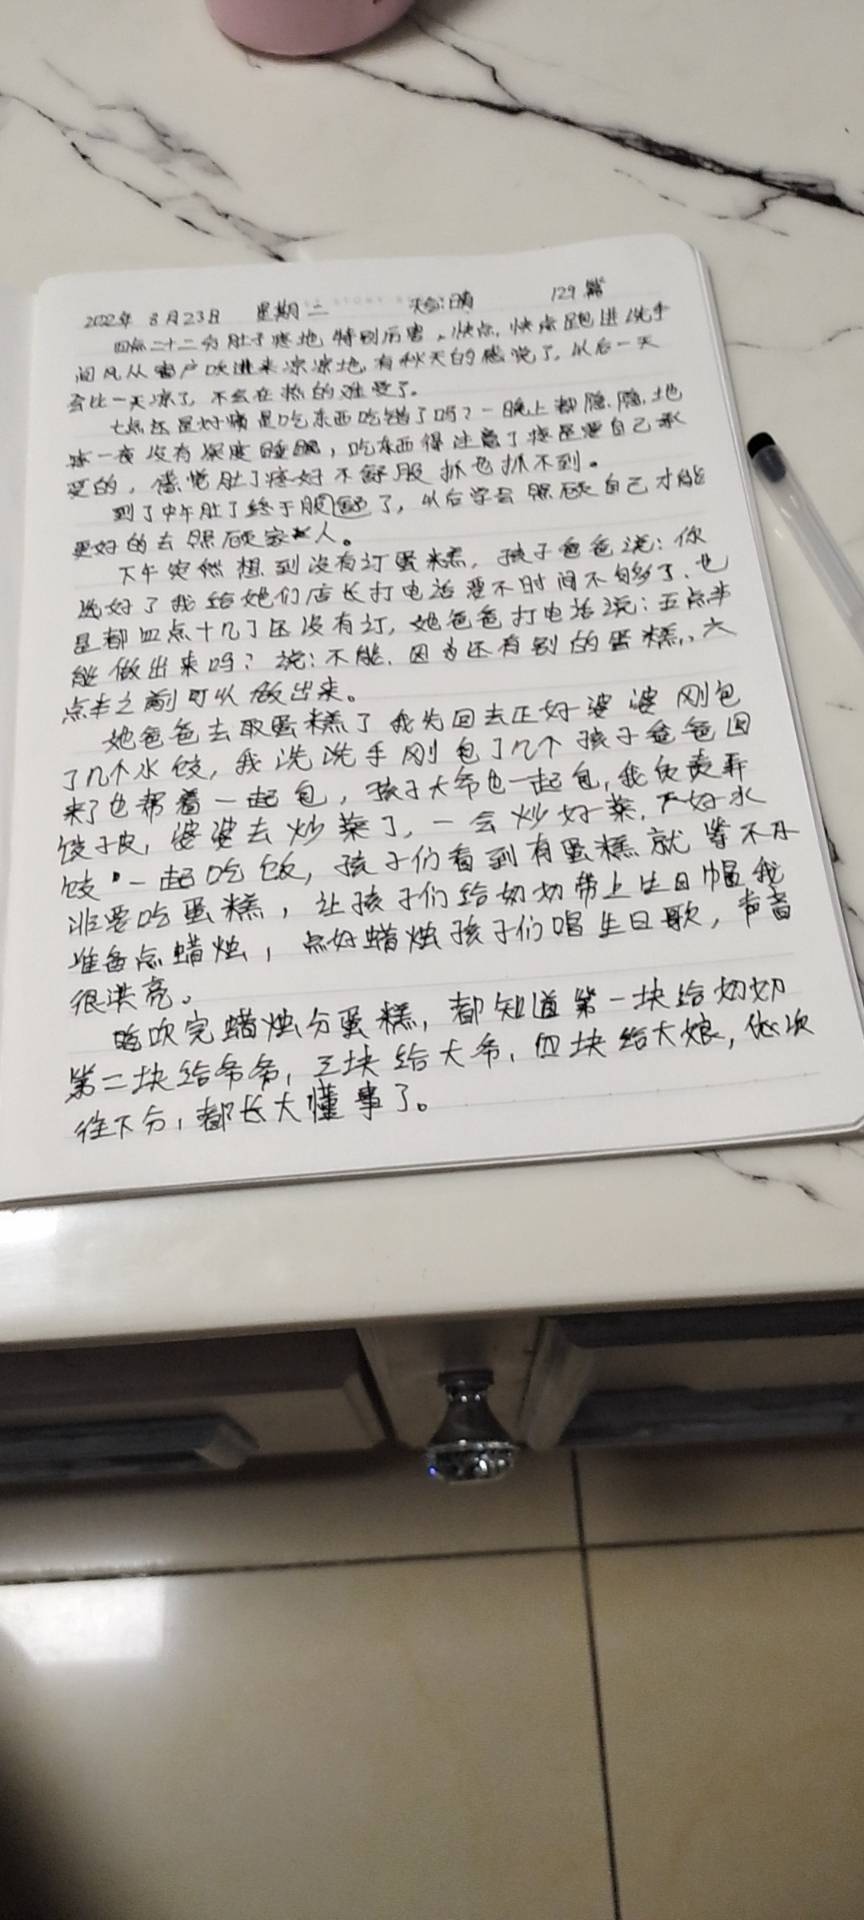 2022年 8月23日 星期二 天气:晴 129篇
四点二十二分肚子疼地特别厉害，快点，快点跑进洗手
间风从窗户吹进来凉凉地，有秋天的感觉了，以后一天
会比一天凉了，不会在热的难受了。
七点还是好痛是吃东西吃错了吗？一晚上都隐、隐、地
疼一夜没有深度睡眠，吃东西得注意了疼是要自己承
受的，感觉肚子疼好不舒服抓也抓不到。
到了中午肚子终于服了，以后学会照顾自己才能
更好的去照顾家人。
下午突然想到没有订蛋糕，孩子爸爸说：你
选好了我给她们店长打电话要不时间不够了、也
是都四点十几了还没有订，她爸爸打电话说：五点半
能做出来吗？说：不能、因为还有别的蛋糕、六
点半之前可以做出来。
她爸爸去取蛋糕了我先回去正好婆婆刚包
了几个水饺，我洗洗手刚包了几个孩子爸爸回
来了也帮着一起包，孩子大爷也一起包，我负责弄
饺子皮，婆婆去炒菜了，一会炒好菜，下好水
饺·一起吃饭，孩子们看到有蛋糕就等不及
非要吃蛋糕，让孩子们给奶奶带上生日帽我
准备点蜡烛，点好蜡烛孩子们唱生日歌，声音
很洪亮。
吹完蜡烛分蛋糕，都知道第一块给奶奶
第二块给爷爷，三块给大爷，四块给大娘，依次
往下分，都长大懂事了。